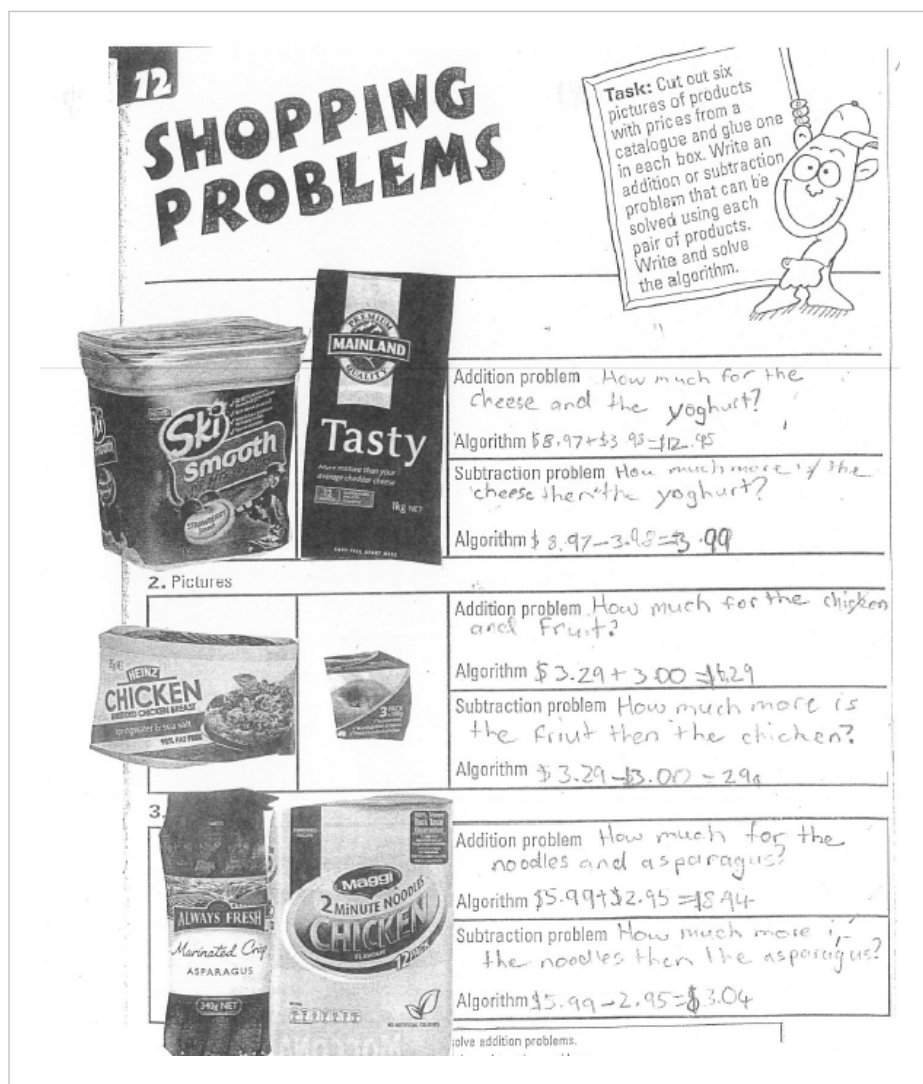 12
SHOPPING
PROBLEMS
Task: Cut out six
pictures of products
with prices from a
catalogue and glue one
in each box. Write an
addition or subtraction
problem that can be
solved using each
pair of products.
Write and solve
the algorithm.
Ski
smooth
STRAWBERRY
PREMIUM
MAINLAND
QUALITY
Tasty
More mature than your
average cheddar cheese
1kg NET
Addition problem How much for the
cheese and the yoghurt?
Algorithm $8.97+$3.98=$12.95
Subtraction problem How much more is the
cheese then the yoghurt?
Algorithm $8.97-3.98=$3.99
2. Pictures
HEINZ
CHICKEN
SHREDDED CHICKEN BREAST
springwater & sea salt
99% FAT FREE
3 PACK
Addition problem How much for the chicken
and Fruit?
Algorithm $3.29+3.00=$6.29
Subtraction problem How much more is
the friut then the chicken?
Algorithm $3.29-$3.00-29
3.
ALWAYS FRESH
Marinated Crisp
ASPARAGUS
340g NET
Maggi
2 MINUTE NOODLES
CHICKEN
FLAVOUR
12 PACK
NO ARTIFICIAL COLOURS
Addition problem How much for the
noodles and asparagus?
Algorithm $5.99+$2.95=$8.94
Subtraction problem How much more is
the noodles then the asparagus?
Algorithm $5.99-2.95=$3.04
solve addition problems.